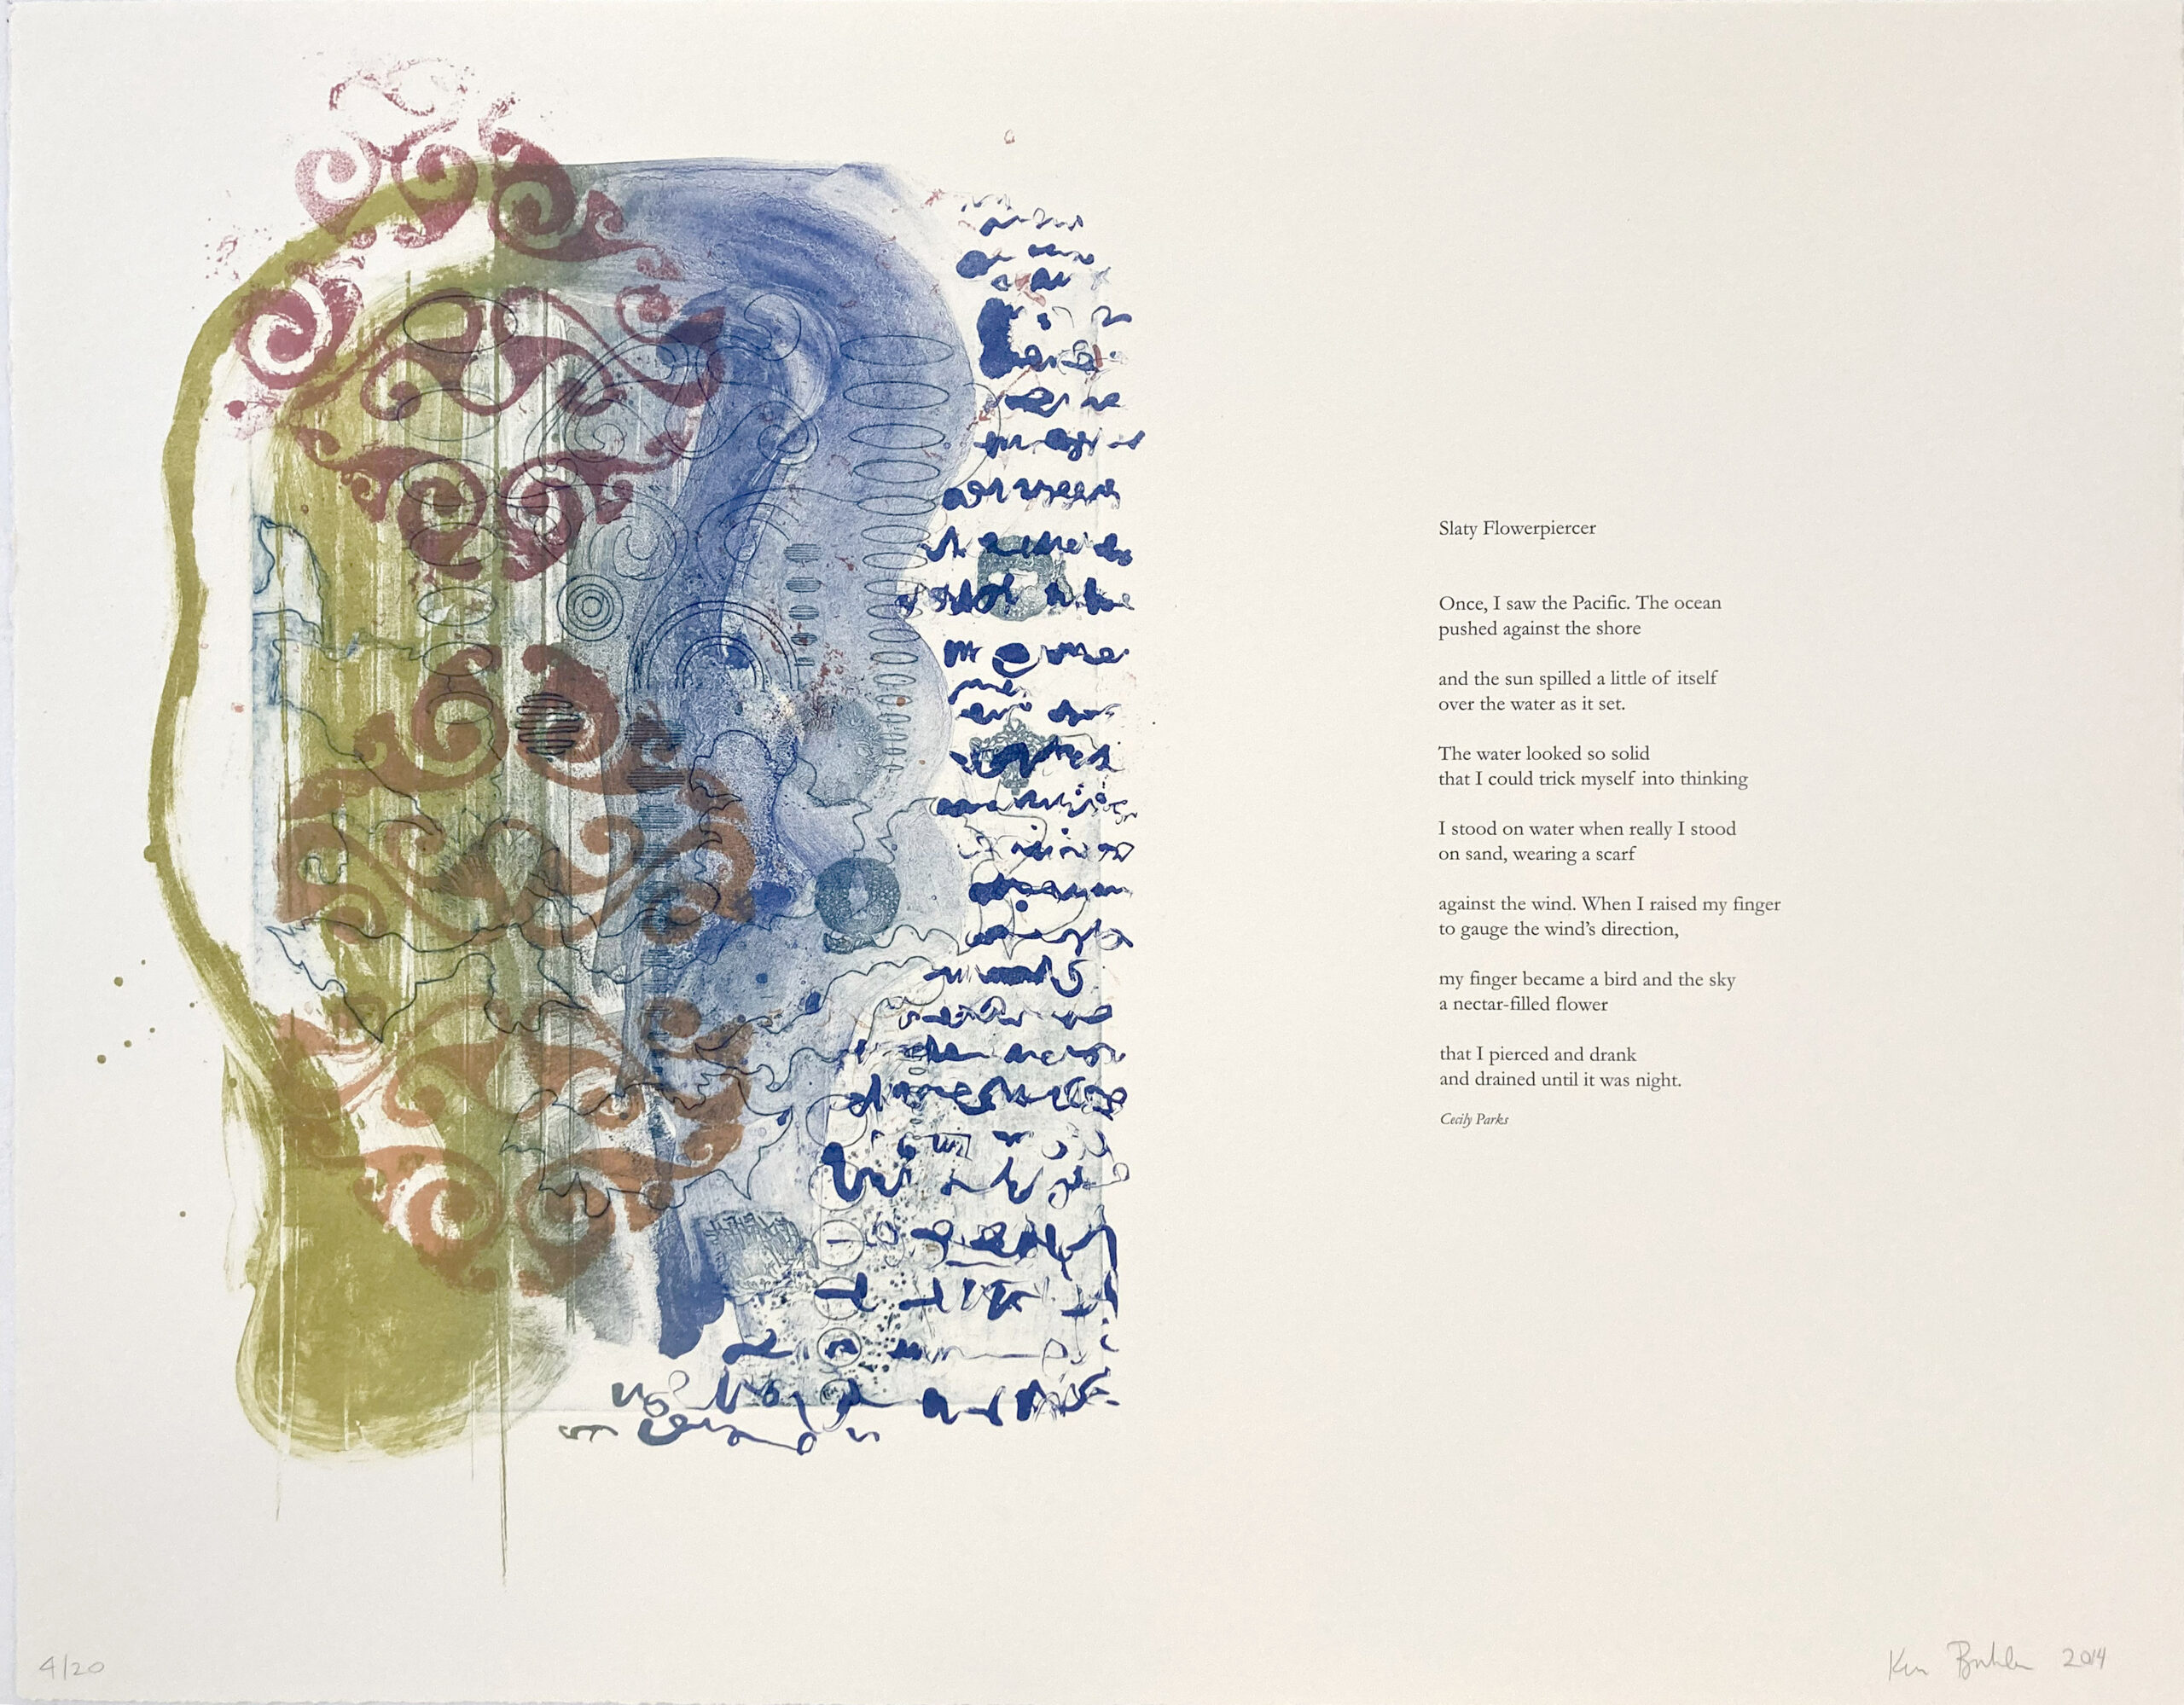 Slaty Flowerpiercer
Once, I saw the Pacific. The ocean
pushed against the shore
and the sun spilled a little of itself
over the water as it set.
The water looked so solid
that I could trick myself into thinking
I stood on water when really I stood
on sand, wearing a scarf
against the wind. When I raised my finger
to gauge the wind’s direction,
my finger became a bird and the sky
a nectar-filled flower
that I pierced and drank
and drained until it was night.
Cecily Parks
4/20
2014